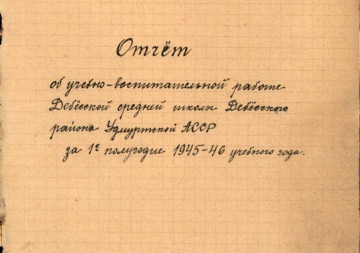 Отчёт
об учебно-воспитательной работе
Дебёсской средней школы Дебёсского
района Удмуртской АССР
за 1е полугодие 1945-46 учебного года.